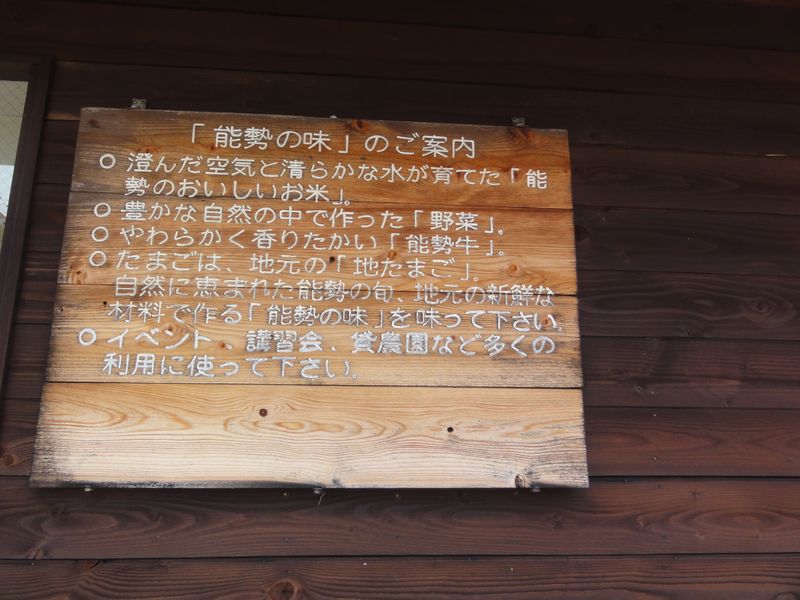 「能勢の味」のご案内
○ 澄んだ空気と清らかな水が育てた「能
勢のおいしいお米」。
○ 豊かな自然の中で作った「野菜」。
○ やわらかく香りたかい「能勢牛」。
○ たまごは、地元の「地たまご」。
自然に恵まれた能勢の旬、地元の新鮮な
材料で作る「能勢の味」を味って下さい。
○ イベント、講習会、貸農園など多くの
利用に使って下さい。